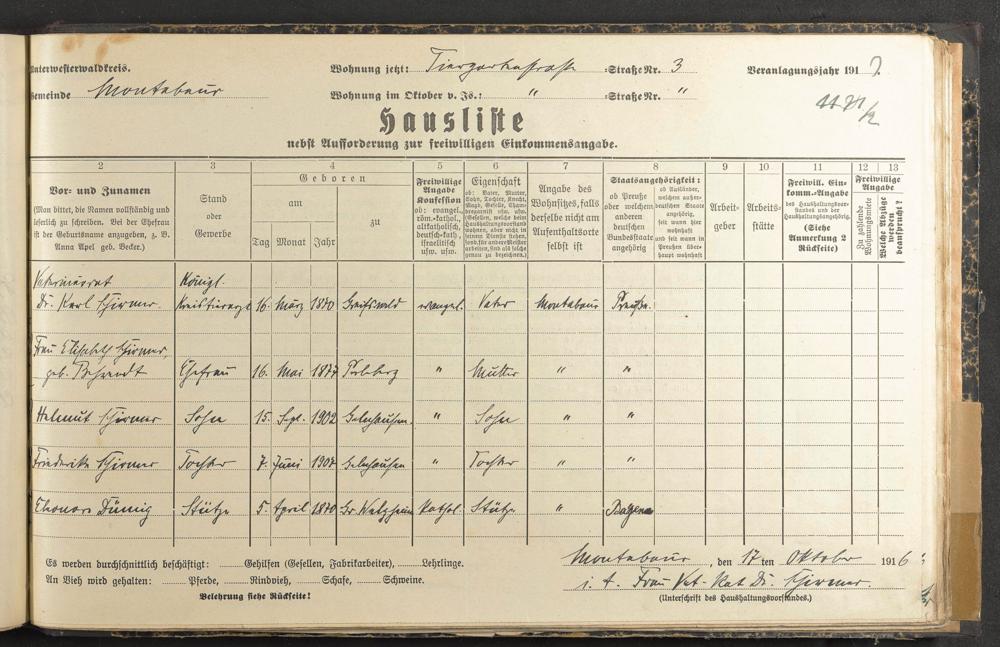 Unterwesterwaldkreis.
Wohnung jetzt: Tiergartenstraße =Straße Nr. 3
Veranlagungsjahr 1917
Gemeinde Montabaur
Wohnung im Oktober v. Js.: " =Straße Nr. "
Hausliste
nebst Aufforderung zur freiwilligen Einkommensangabe.
2 3 4 5 6 7 8 9 10 11 12 13
Vor- und Zunamen
(Man bittet, die Namen vollständig und
leserlich zu schreiben. Bei der Ehefrau
ist der Geburtsname anzugeben, z. B.
Anna Apel geb. Becker.)
Stand
oder
Gewerbe
Geboren
am
Tag Monat Jahr
zu
Freiwillige
Angabe
Konfession
ob: evangel.,
röm.-kathol.,
altkatholisch,
deutsch-kath.,
israelitisch
usw. usw.
Eigenschaft
ob: Vater, Mutter,
Sohn, Tochter, Knecht,
Magd, Geselle, Cham-
bregarnist usw. usw.
(Gesellen, welche beim
Haushaltungsvorstand
wohnen, aber nicht in
seinem Dienste stehen,
sond. für andere Meister
arbeiten, sind als solche
genau zu bezeichnen.)
Angabe des
Wohnsitzes, falls
derselbe nicht am
Aufenthaltsorte
selbst ist
Staatsangehörigkeit:
ob Preuße
oder welchem
anderen
deutschen
Bundesstaate
angehörig
ob Ausländer,
welchem außer-
deutschen Staate
angehörig,
seit wann hier
wohnhaft
und seit wann in
Preußen über-
haupt wohnhaft
Arbeit-
geber
Arbeits-
stätte
Freiwill. Ein-
komm.-Angabe
des Haushaltungsvor-
standes und der
Haushaltungsangehörig.
(Siehe
Anmerkung 2
Rückseite)
Freiwillige
Angabe
Zu zahlende
Wohnungsmiete
Welche Abzüge
werden
beansprucht?
Veterinärrat Königl.
Dr. Karl Schirmer Kreistierarzt 16. März 1870 Greifswald evangel. Vater Montabaur Preuße.
Frau Elisabeth Schirmer,
geb. Behrendt Ehefrau 16. Mai 1877 " Mutter " "
Helmut Schirmer Sohn 15. Sept. 1902 Gelnhausen. " Sohn " "
Friederike Schirmer Tochter 7. Juni 1907 Gelnhausen " Tochter " "
Eleonore Dümig Stütze 5. April 1870 Gr. Welzheim kathol. Stütze " Bayern
Es werden durchschnittlich beschäftigt: Gehilfen (Gesellen, Fabrikarbeiter), Lehrlinge.
An Vieh wird gehalten: Pferde, Rindvieh, Schafe, Schweine.
Belehrung siehe Rückseite!
Montabaur, den 17 ten Oktober 1916
Frau Vet.-Rat Dr. Schirmer.
(Unterschrift des Haushaltungsvorstandes.)